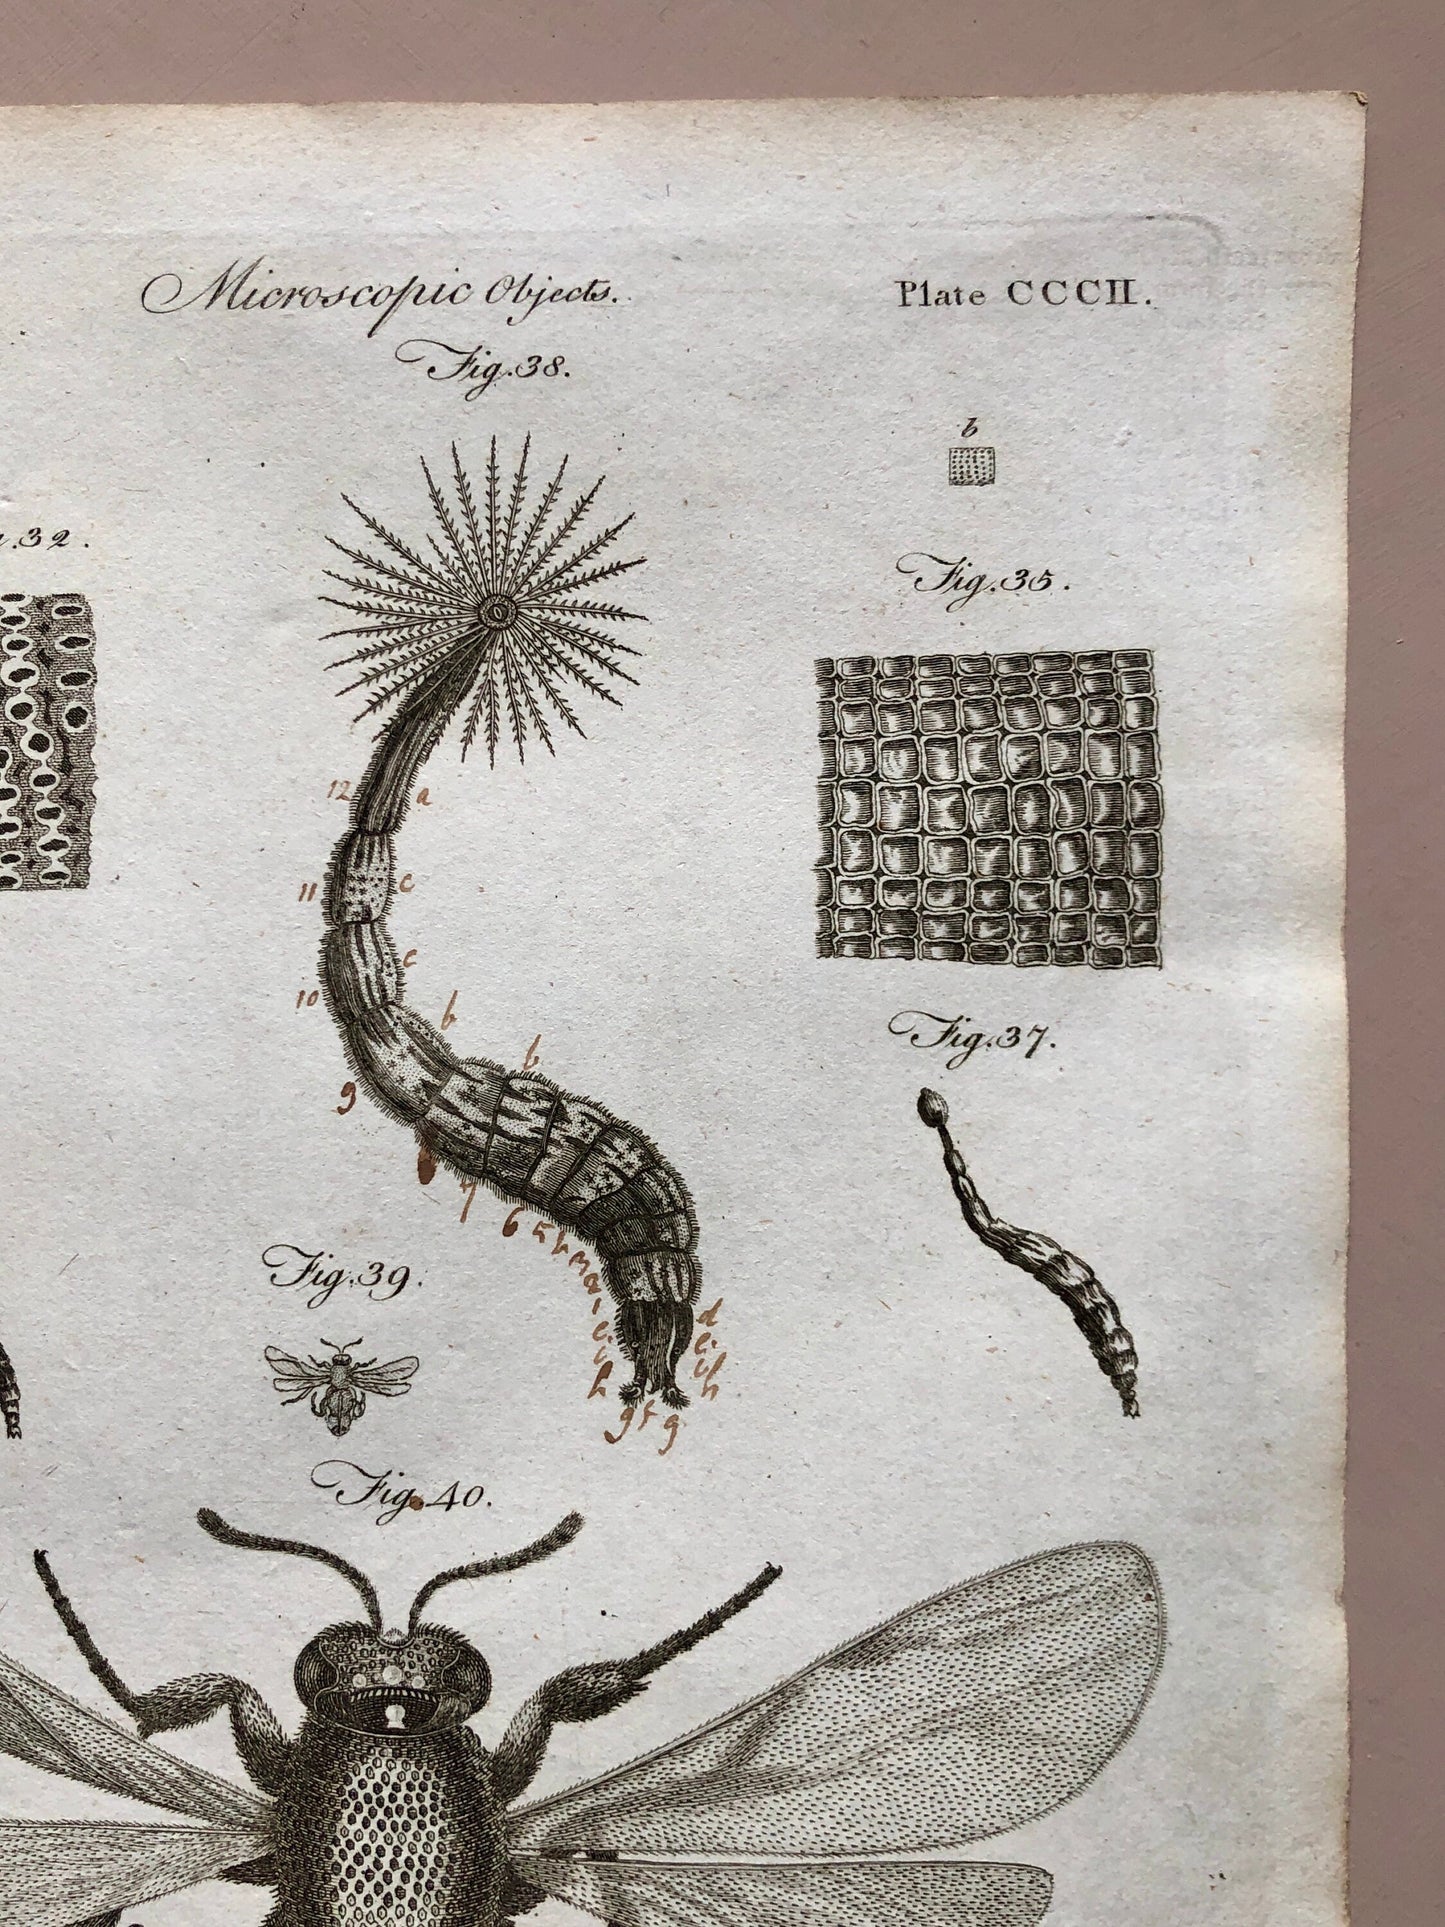 Microscopic Objects.
Plate CCCII.
Fig.38.
b
.32.
Fig.35.
12
a
11
c
c
10
b
Fig.37.
b
9
7
6
5
4
3
2
1
Fig.39.
d
e.
e.
i
i
h
h
g
f
g
Fig.40.